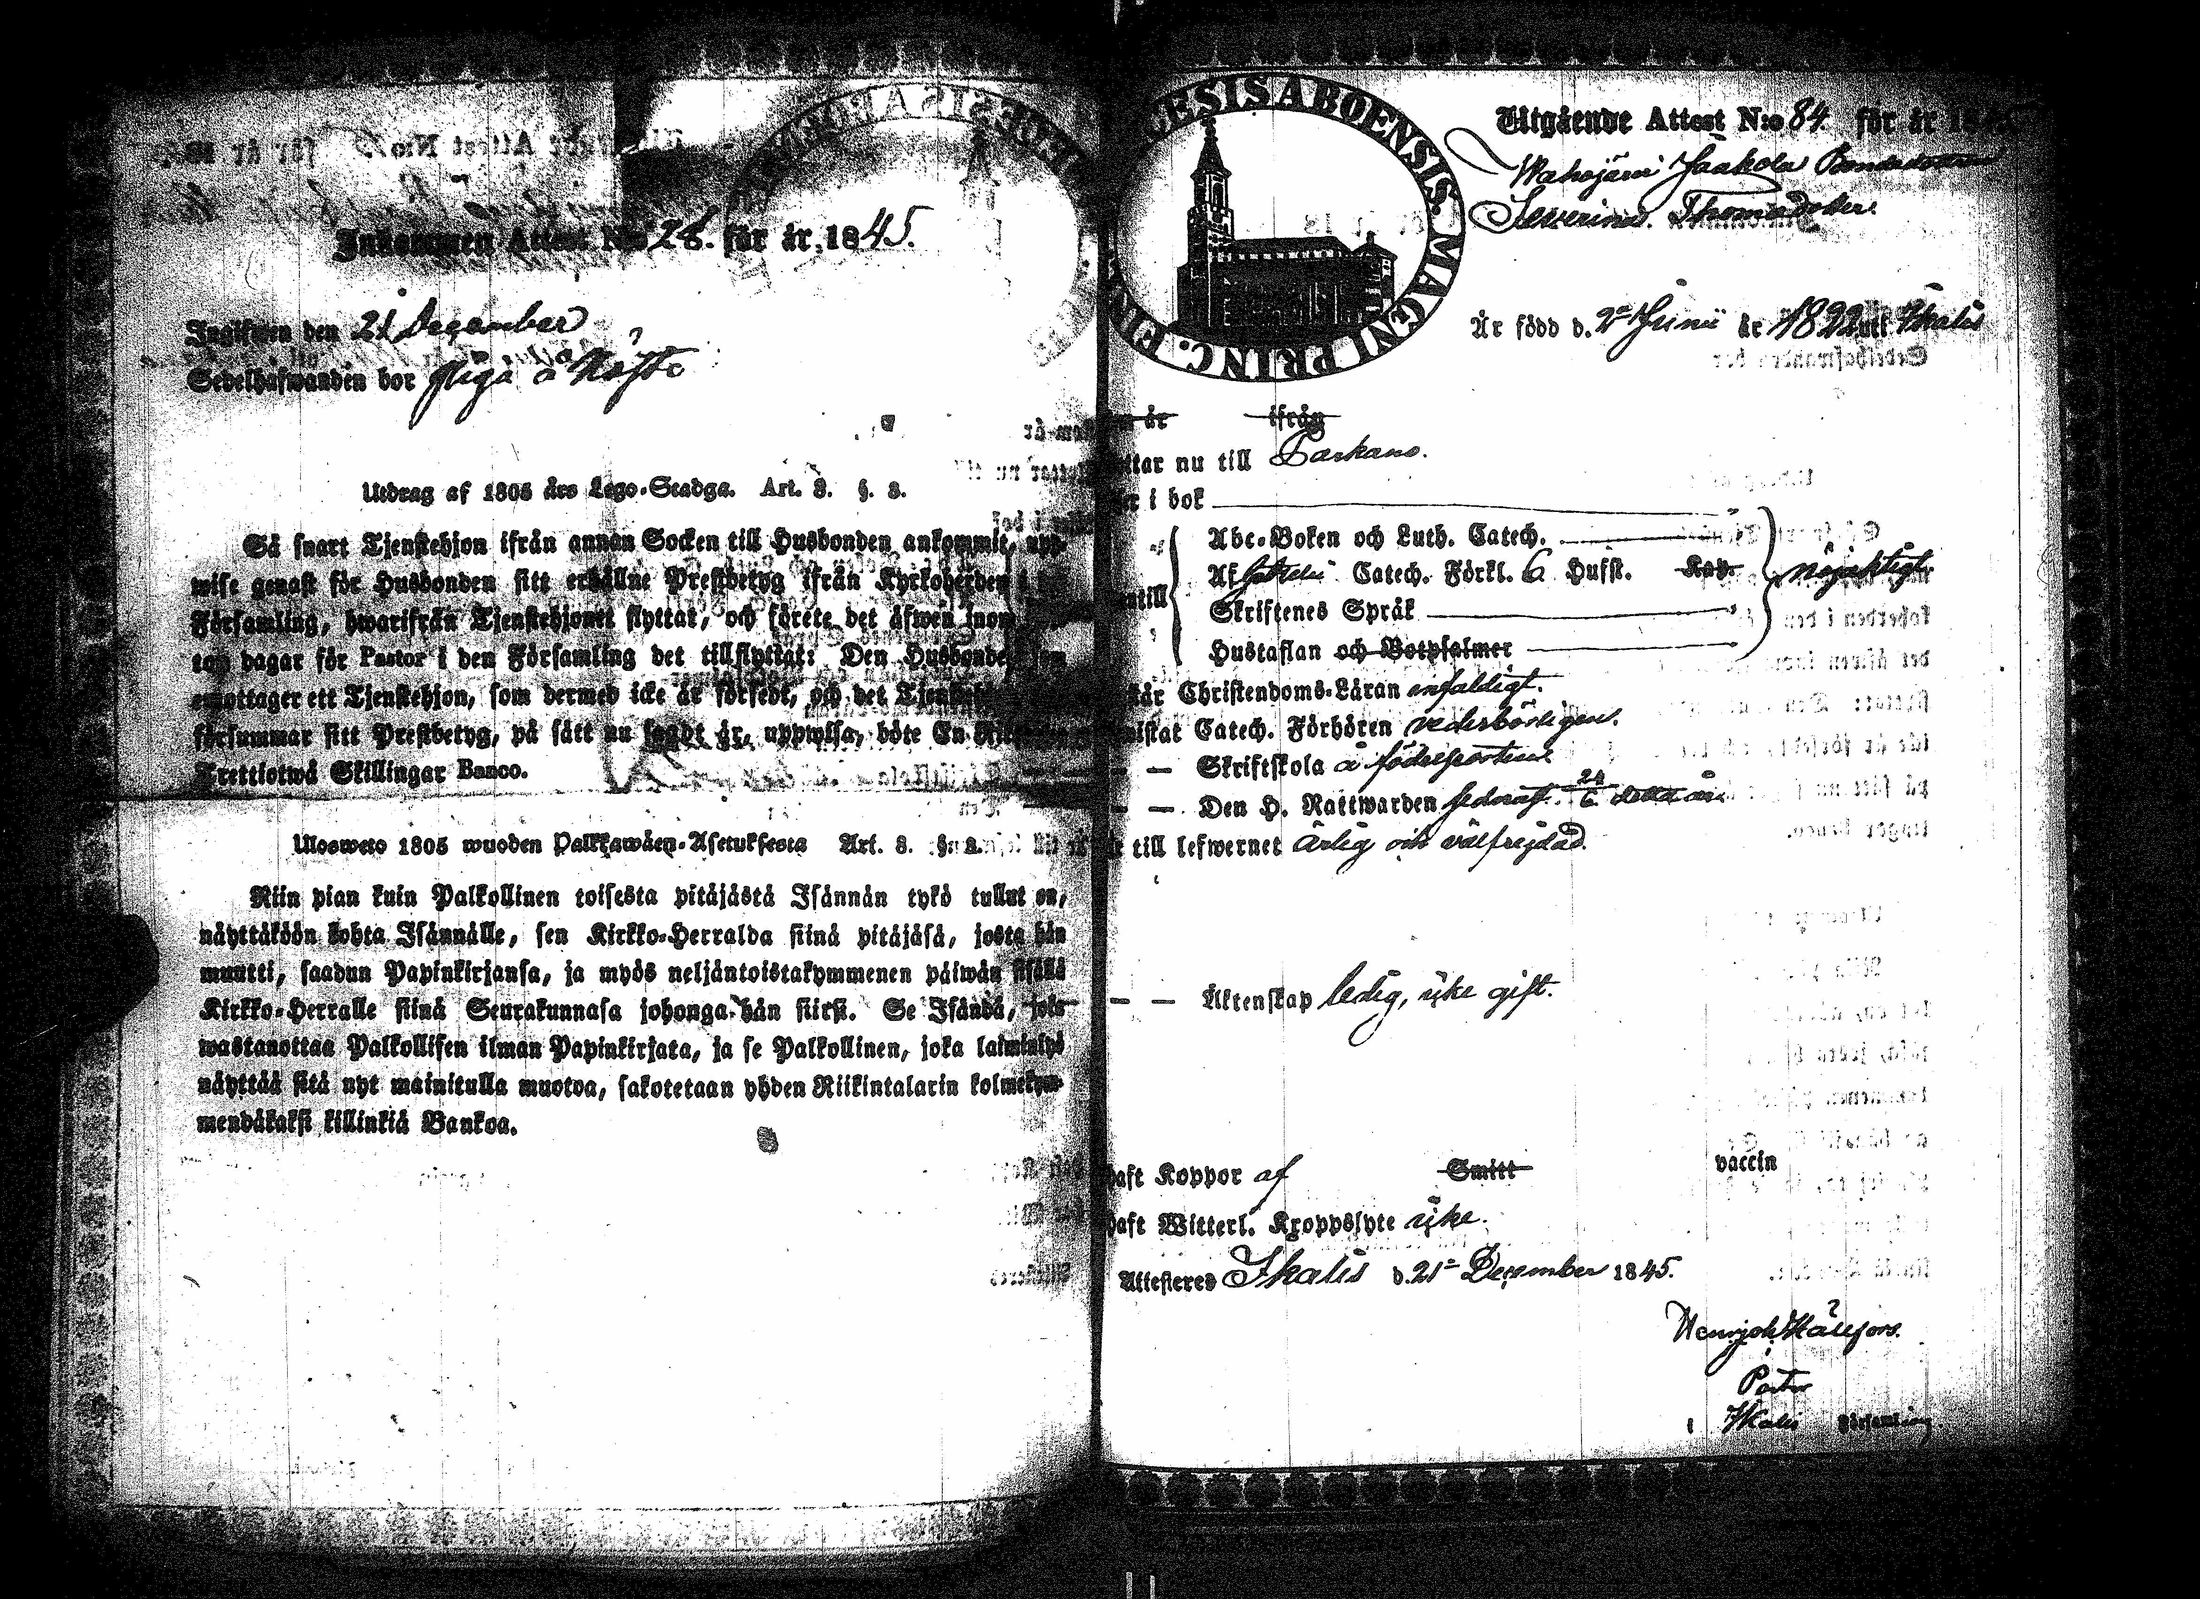 Inkommen Attest N:o 28. för år 1845.
Ingifwen den 21 December
Sedelhafwanden bor piga å
Utdrag af 1805 års Lego-Stadga. Art. 8. §. 8.
Så snart Tjenstehjon ifrån annan Socken till Husbonden ankommit, upp-
wise genast för Husbonden sitt erhållne Prestbetyg ifrån Kyrkoherden i
Församling, hwarifrån Tjenstehjonet flyttat, och förete det äfwen inom
ton dagar för Pastor i den Församling det tillflyttat: Den Husbonde, som
emottager ett Tjenstehjon, som dermed icke är försedt, och det Tjenstehjon
försummar sitt Prestbetyg, på sätt nu sagdt är, uppwisa, böte En
Trettiotwå Skillingar Banco.
Ulosweto 1805 wuoden Palkkawäen-Asetuksesta Art. 8. §. 8.
Niin pian kuin Palkollinen toisesta pitäjästä Isännän tykö tullut on,
näyttäköön kohta Isännälle, sen Kirkko-Herralda siinä pitäjäsä, josta hän
muutti, saadun Papinkirjansa, ja myös neljäntoistakymmenen päiwän sisällä
Kirkko-Herralle siinä Seurakunnasa johonga hän siirsi. Se Isändä, joka
wastanottaa Palkollisen ilman Papinkirjata, ja se Palkollinen, joka laiminlyö
näyttää sitä nyt mainitulla muotoa, sakotetaan yhden Riikintalarin kolmekym-
mendäkaksi killinkiä Bankoa.
ESIS ABOENSIS. MAGNI PRINC. FIN
Utgående Attest N:o 84. för år 18
Wahojärvi Jaakola Bondedottren
Severina Thomædotter.
Är född d. 2 Junii år 1822 uti Ikalis
är ifrån
ttar nu till Parkano.
er i bok
Abc-Boken och Luth. Catech.
Af Catech. Förkl. 6 Hufst. Kap. nöjaktigt.
ntill
Skriftenes Språk
Hustaflan och Botpsalmer
står Christendoms-Läran enfaldigt.
wistat Catech. Förhören vederbörligen.
— Skriftskola å födelseorten.
— Den H. Nattwarden sednast 24/6 detta år.
till lefwernet ärlig och välfrejdad.
— — Äktenskap ledig, icke gift.
haft Koppor af Smitt vaccin
haft Witterl. Kroppslyte icke.
Attesteras Ikalis d. 21 December 1845.
Pastor
i Ikalis Församling